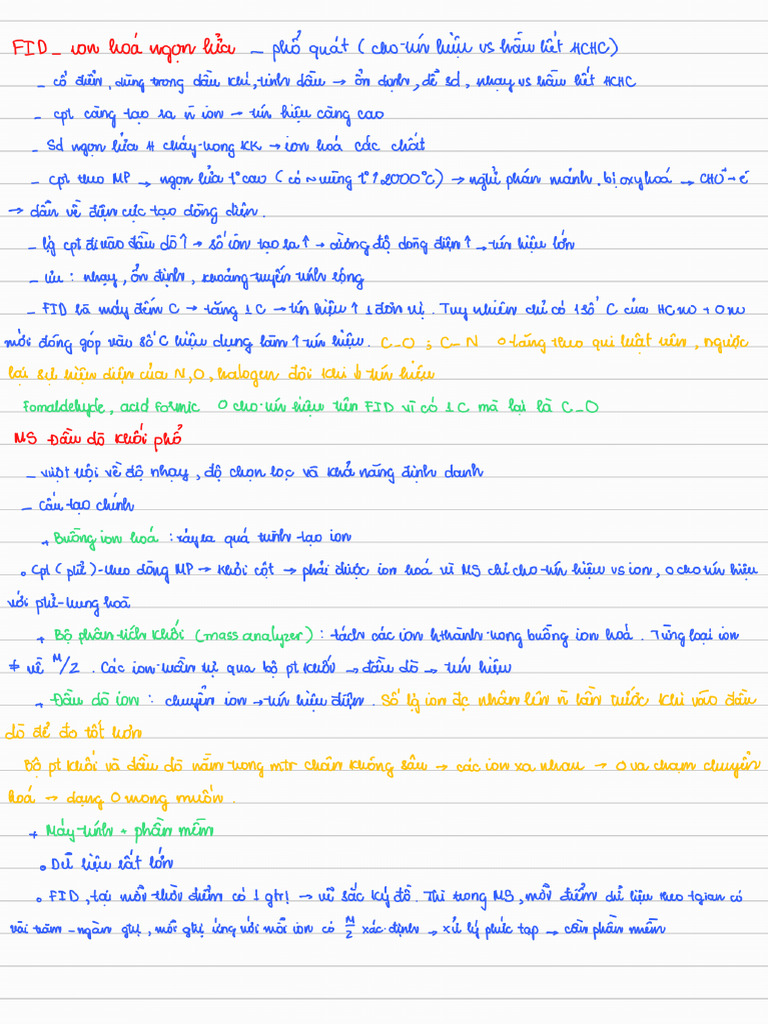 FID _ ion hoá ngọn lửa _ phổ quát ( cho tín hiệu vs hầu hết HCHC)
_ cổ điển, dùng trong dầu khí, tinh dầu → ổn định, dễ sd, nhạy vs hầu hết HCHC
_ cpt càng tạo ra ñ ion → tín hiệu càng cao
_ Sd ngọn lửa H cháy trong KK → ion hoá các chất
_ Cpt theo MP → ngọn lửa t° cao ( có ~ vùng t° ↑ 2000°C) → nghỉ phân mảnh. bị oxy hoá → CHO⁺ + é
→ dẫn về điện cực tạo dòng điện.
_ lg cpt đi vào đầu dò ↑ → số ion tạo ra ↑ → cường độ dòng điện ↑ → tín hiệu lớn
_ ưu : nhạy, ổn định, khoảng tuyến tính rộng
_ FID là máy đếm C → tăng 1 C → tín hiệu ↑ 1 đơn vị. Tuy nhiên chỉ có 1 số C của HC no + 0 no
mới đóng góp vào số C hiệu dụng làm ↑ tín hiệu. C_O ; C_N 0 tăng theo qui luật trên, ngược
lại sự hiện diện của N,O, halogen đôi khi ↓ tín hiệu
Fomaldehyde, acid formic 0 cho tín hiệu trên FID vì có 1 C mà lại là C_O
MS - Đầu dò khối phổ
_ vượt trội về độ nhạy, độ chọn lọc và khả năng định danh
_ Cấu tạo chính
+ Buồng ion hoá : xảy ra quá trình tạo ion
∘ Cpt ( ptử ) theo dòng MP → khỏi cột → phải được ion hoá vì MS chỉ cho tín hiệu vs ion, 0 cho tín hiệu
với ptử trung hoà
+ Bộ phân tích khối (mass analyzer) : tách các ion hthành trong buồng ion hoá. Từng loại ion
≠ về M/Z. Các ion tuần tự qua bộ pt khối → đầu dò → tín hiệu
+ Đầu dò ion : chuyển ion → tín hiệu điện. Số lg ion đc nhân lên ñ lần trước khi vào đầu
dò để đo tốt hơn
Bộ pt khối và đầu dò nằm trong mtr chân không sâu → các ion xa nhau → 0 va chạm chuyển
hoá → dạng 0 mong muốn.
+ Máy tính + phần mềm
∘ Dữ liệu rất lớn
∘ FID, tại mỗi thời điểm có 1 gtrị → vẽ sắc ký đồ. Thì trong MS, mỗi điểm dữ liệu theo tgian có
vài trăm - ngàn gtrị, mỗi gtrị ứng với mỗi ion có M/Z xác định → xử lý phức tạp → cần phần mềm